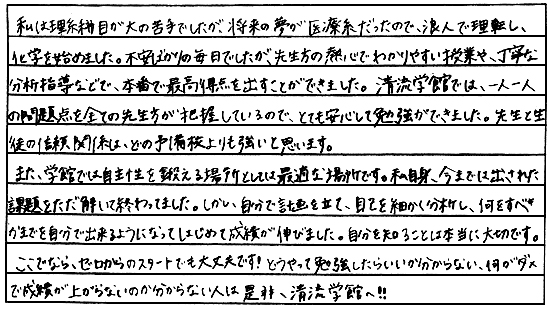 私は理系科目が大の苦手でしたが、将来の夢が医療系だったので、浪人で理転し、
化学を始めました。不安ばかりの毎日でしたが、先生方の熱心でわかりやすい授業や、丁寧な
分析指導などで、本番で最高得点を出すことができました。清流学館では、一人一人
の問題点を全ての先生方が把握しているので、とても安心して勉強ができました。先生と生
徒の信頼関係は、どの予備校よりも強いと思います。
また、学館では自主性を鍛える場所としては最適な場所です。私自身、今までは出された
課題をただ解いて終わってました。しかし、自分で計画を立て、自己を細かく分析し、何をすべき
かまでを自分で出来るようになってはじめて成績が伸びました。自分を知ることは本当に大切です。
ここでなら、ゼロからのスタートでも大丈夫です!どうやって勉強したらいいか分からない、何がダメ
で成績が上がらないのか分からない人は是非、清流学館へ!!